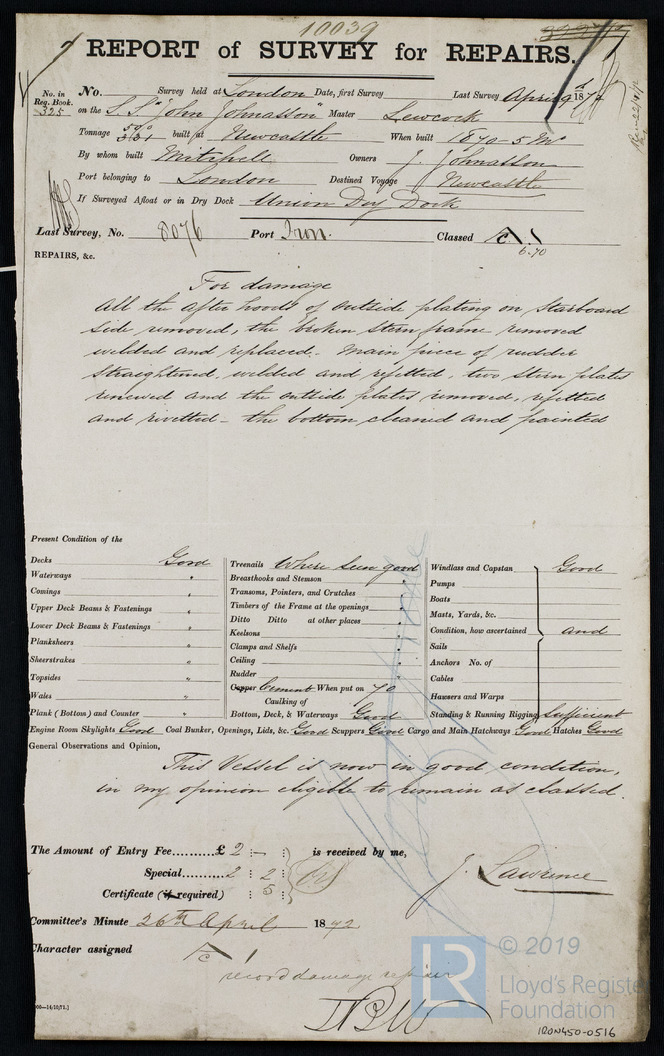 10039
REPORT of SURVEY for REPAIRS.
No. in Reg. Book. 325
No. Survey held at London Date, first Survey Last Survey April 9th 1872
on the S.S. "John Johnasson" Master Lewcock
Tonnage 590 331 built at Newcastle When built 1870-5 Mo
By whom built Mitchell Owners J. Johnasson
Port belonging to London Destined Voyage Newcastle
If Surveyed Afloat or in Dry Dock Union Dry Dock
Last Survey, No. 8076 Port Iron. Classed
6.70
REPAIRS, &c.
For damage
All the after hoods of outside plating on Starboard
side removed, the broken stern frame removed
welded and replaced. Main piece of rudder
straightened, welded and refitted, two stern plates
renewed and the outside plates removed, refitted
and rivetted - the bottom cleaned and painted
Present Condition of the
Decks Good Treenails Where seen good Windlass and Capstan Good
Waterways " Breasthooks and Stemson " Pumps
Comings " Transoms, Pointers, and Crutches " Boats
Upper Deck Beams & Fastenings " Timbers of the Frame at the openings " Masts, Yards, &c.
Lower Deck Beams & Fastenings " Ditto Ditto at other places " Condition, how ascertained and
Planksheers " Keelsons " Sails
Sheerstrakes " Clamps and Shelfs " Anchors No. of
Topsides " Ceiling " Cables
Wales " Rudder " Hawsers and Warps
Copper Cement When put on 70
Caulking of
Plank (Bottom) and Counter " Bottom, Deck, & Waterways Good Standing & Running Rigging Sufficient
Engine Room Skylights Good Coal Bunker, Openings, Lids, &c. Good Scuppers Good Cargo and Main Hatchways Good Hatches Good
General Observations and Opinion,
This Vessel is now in good condition,
in my opinion eligible to remain as classed.
The Amount of Entry Fee......... £ 2 : - : is received by me,
Special....... 2 : 2 :
Certificate (if required) : 5 :
J. Lawrence
Committee's Minute 26th April 1872
Character assigned
record damage repair
© 2019
LR
Lloyd's Register
Foundation
IRON450-0516